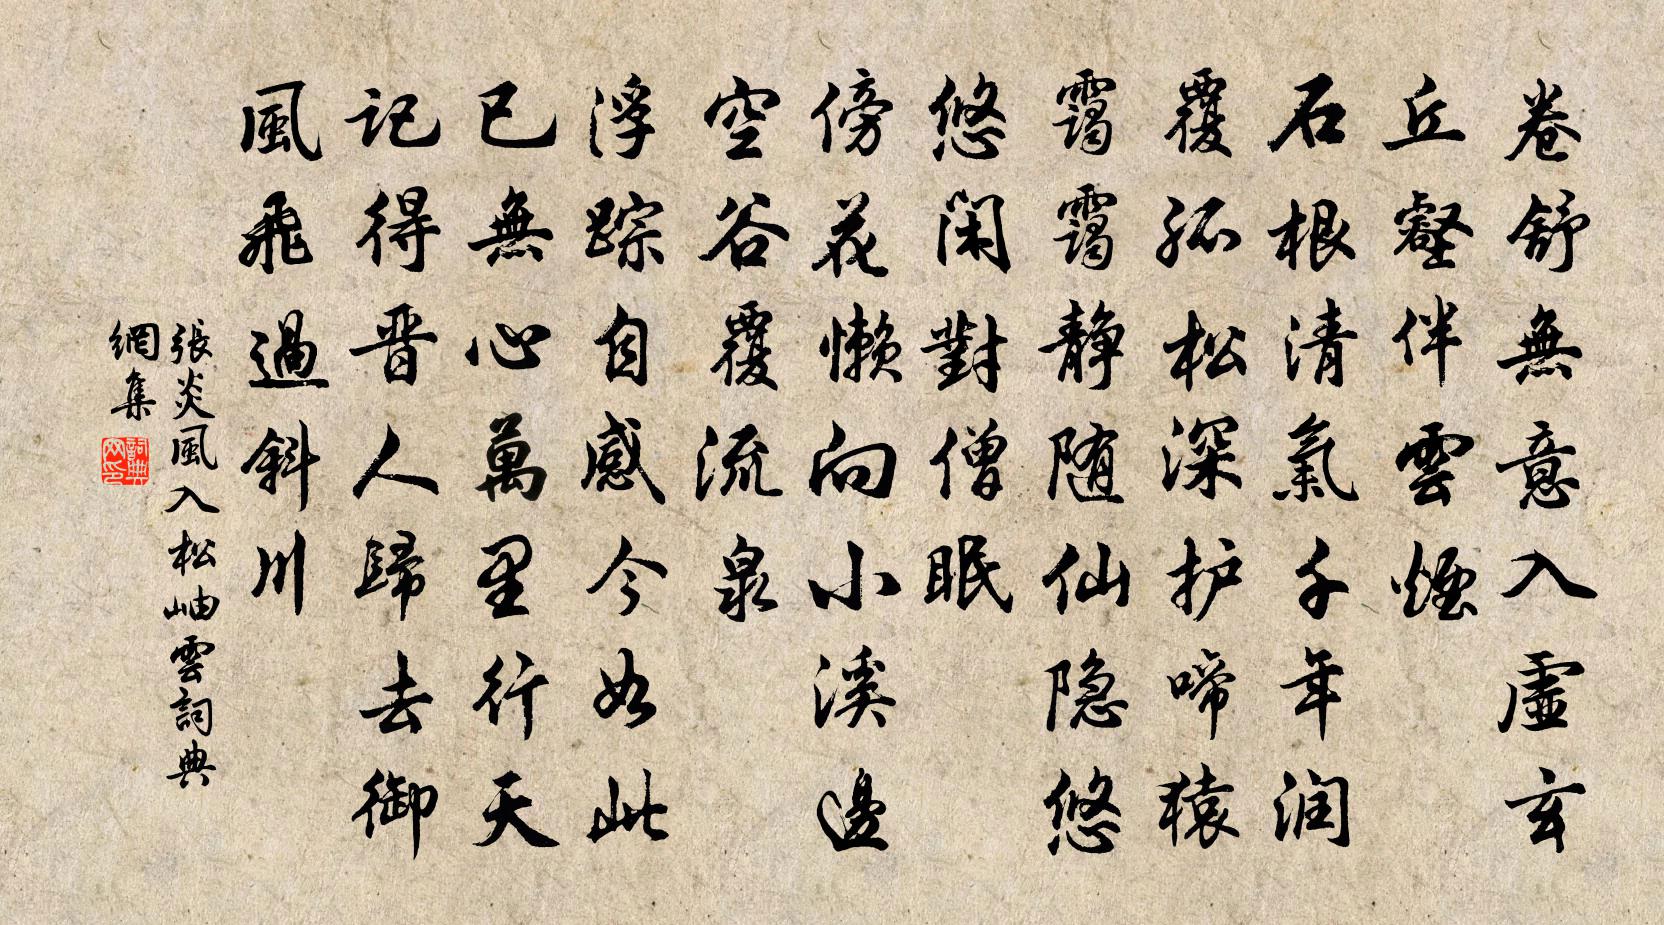 卷舒無意入虛玄
丘壑伴雲煙
石根清氣千年润
覆孤松深护啼猿
靄靄静随仙隐悠
悠闲對僧眠
傍花懒向小溪邊
空谷覆流泉
浮踪自感今如此
已無心萬里行天
記得晋人歸去御
風飛過斜川
張炎風入松岫雲詞典
網集
詞典
网印